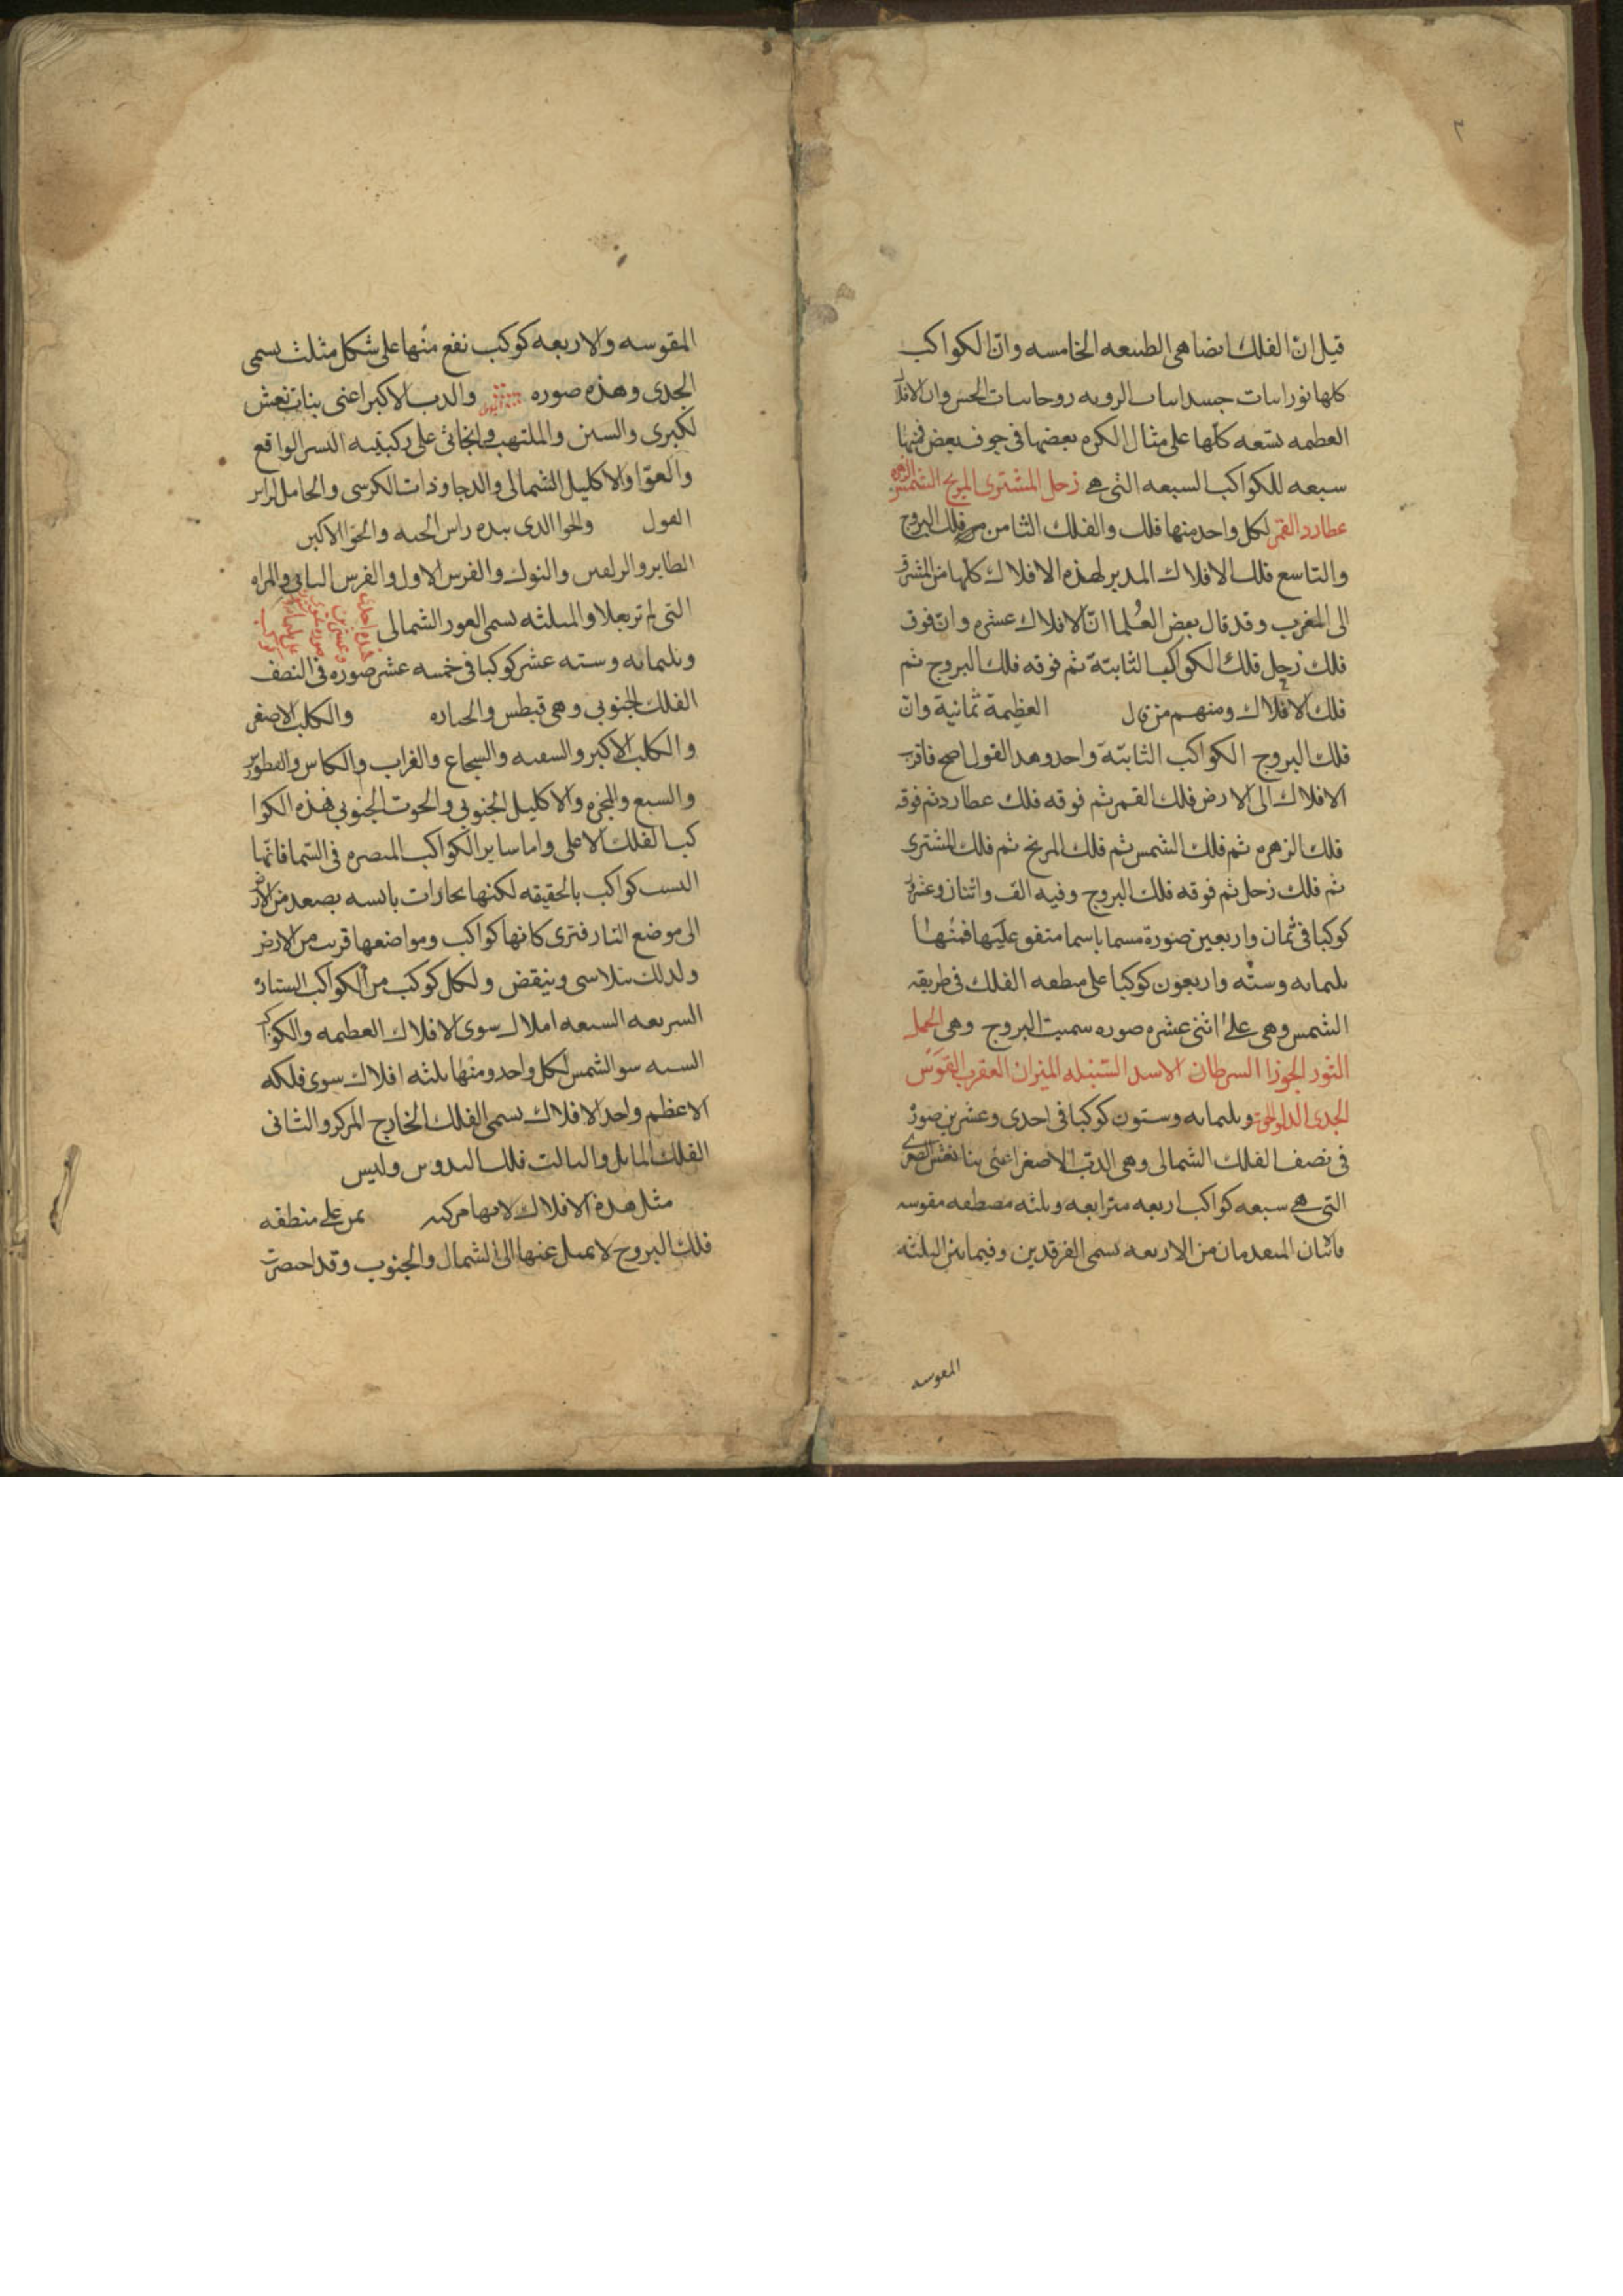 ٣
قيل ان الفلك ايضا هى الطبيعه الخامسه وان الكواكب
كلها نورانيات جسدانيات الرويه روحانيات الحس وان الافلاك
العظمه تسعه كلها على مثال الكره بعضها فى جوف بعض فمنها
سبعه للكواكب السبعه التى هى زحل المشترى المريخ الشمس الزهره
عطارد القمر لكل واحد منها فلك والفلك الثامن فلك البروج
والتاسع فلك الافلاك المدير لهذه الافلاك كلها من المشرق
الى المغرب وقد قال بعض العلما ان الافلاك عشره وان فوق
فلك زحل فلك الكواكب الثابتة ثم فوقه فلك البروج ثم
فلك الافلاك ومنهم من قال العظيمة ثمانية وان
فلك البروج الكواكب الثابتة واحد وهدا القول اصح فاقرب
الافلاك الى الارض فلك القمر ثم فوقه فلك عطارد ثم فوقه
فلك الزهره ثم فلك الشمس ثم فلك المريخ ثم فلك المشترى
ثم فلك زحل ثم فوقه فلك البروج وفيه الف واثنان وعشرون
كوكبا فى ثمان واربعين صورة مسما باسما متفق عليها فمنها
ثلثمايه وسته واربعون كوكبا على منطقه الفلك فى طريقه
الشمس وهى على اثنى عشره صوره سميت البروج وهى الحمل
الثور الجوزا السرطان الاسد السنبله الميزان العقرب القوس
الجدى الدلو الحوت وثلثمايه وستون كوكبا فى احدى وعشرين صورة
فى نصف الفلك الشمالى وهى الدب الاصغر اعنى بنات نعش الصغرى
التى هى سبعه كواكب اربعه مترابعه وثلثه مصطفه مقوسه
فاثنان المتقدمان من الاربعه تسمى الفرقدين وفيما بين الثلثه
المقوسه
المقوسه والاربعه كوكب نقع منها على شكل مثلث يسمى
الجدى وهذه صوره والدب الاكبر اعنى بنات نعش
لكبرى والتنين والملتهب والجاثى على ركبتيه النسر الواقع
والعوا والاكليل الشمالى والدجا وذات الكرسى والحامل لراس
الغول والحوا الدى بيده راس الحيه والحوا الاكبر
الطاير والدلفين والفرس الاول والفرس الثانى والمراه
التى لم تر بعلا والمثلثه يسمى الشمالى
وثلثمايه وسته عشر كوكبا فى خمسه عشر صوره فى النصف
الفلك الجنوبى وهى قيطس والجباره والكلب الاصغر
والكلب الاكبر والسفينه والشجاع والغراب والكاس والقنطورس
والسبع والمجره والاكليل الجنوبى والحوت الجنوبى فهذه الكوا
كب الفلك الاعلى واما ساير الكواكب المبصره فى السما فانها
ليست كواكب بالحقيقه لكنها بخارات يابسه يصعد من الارض
الى موضع النار فترى كانها كواكب ومواضعها قريب من الارض
ولدلك يتلاشى وينقض ولكل كوكب من الكواكب السيارة
السريعه السبعه افلاك سوى الافلاك العظيمه والكواكب
السته سو الشمس لكل واحد ومنها ثلثه افلاك سوى فلكه
الاعظم واحد الافلاك يسمى الفلك الخارج المركز والثانى
الفلك المايل والثالث فلك التدوير وليس
مثل هذه الافلاك لانها مركبه يمر على منطقه
فلك البروج لا تميل عنها الى الشمال والجنوب وقد اختصرت